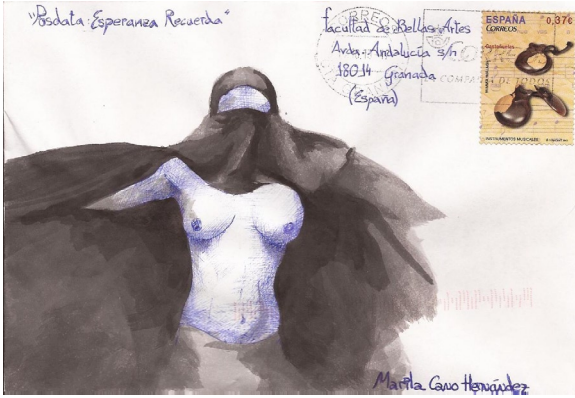 "Posdata: Esperanza Recuerda"
Facultad de Bellas Artes
Avda. Andalucía s/n
18014 Granada
(España)
CORREO
COMPA
A DE TODOS
ESPAÑA 0,37€
CORREOS
Castañuelas
INSTRUMENTOS MUSICALES
Marila Cano Hernández